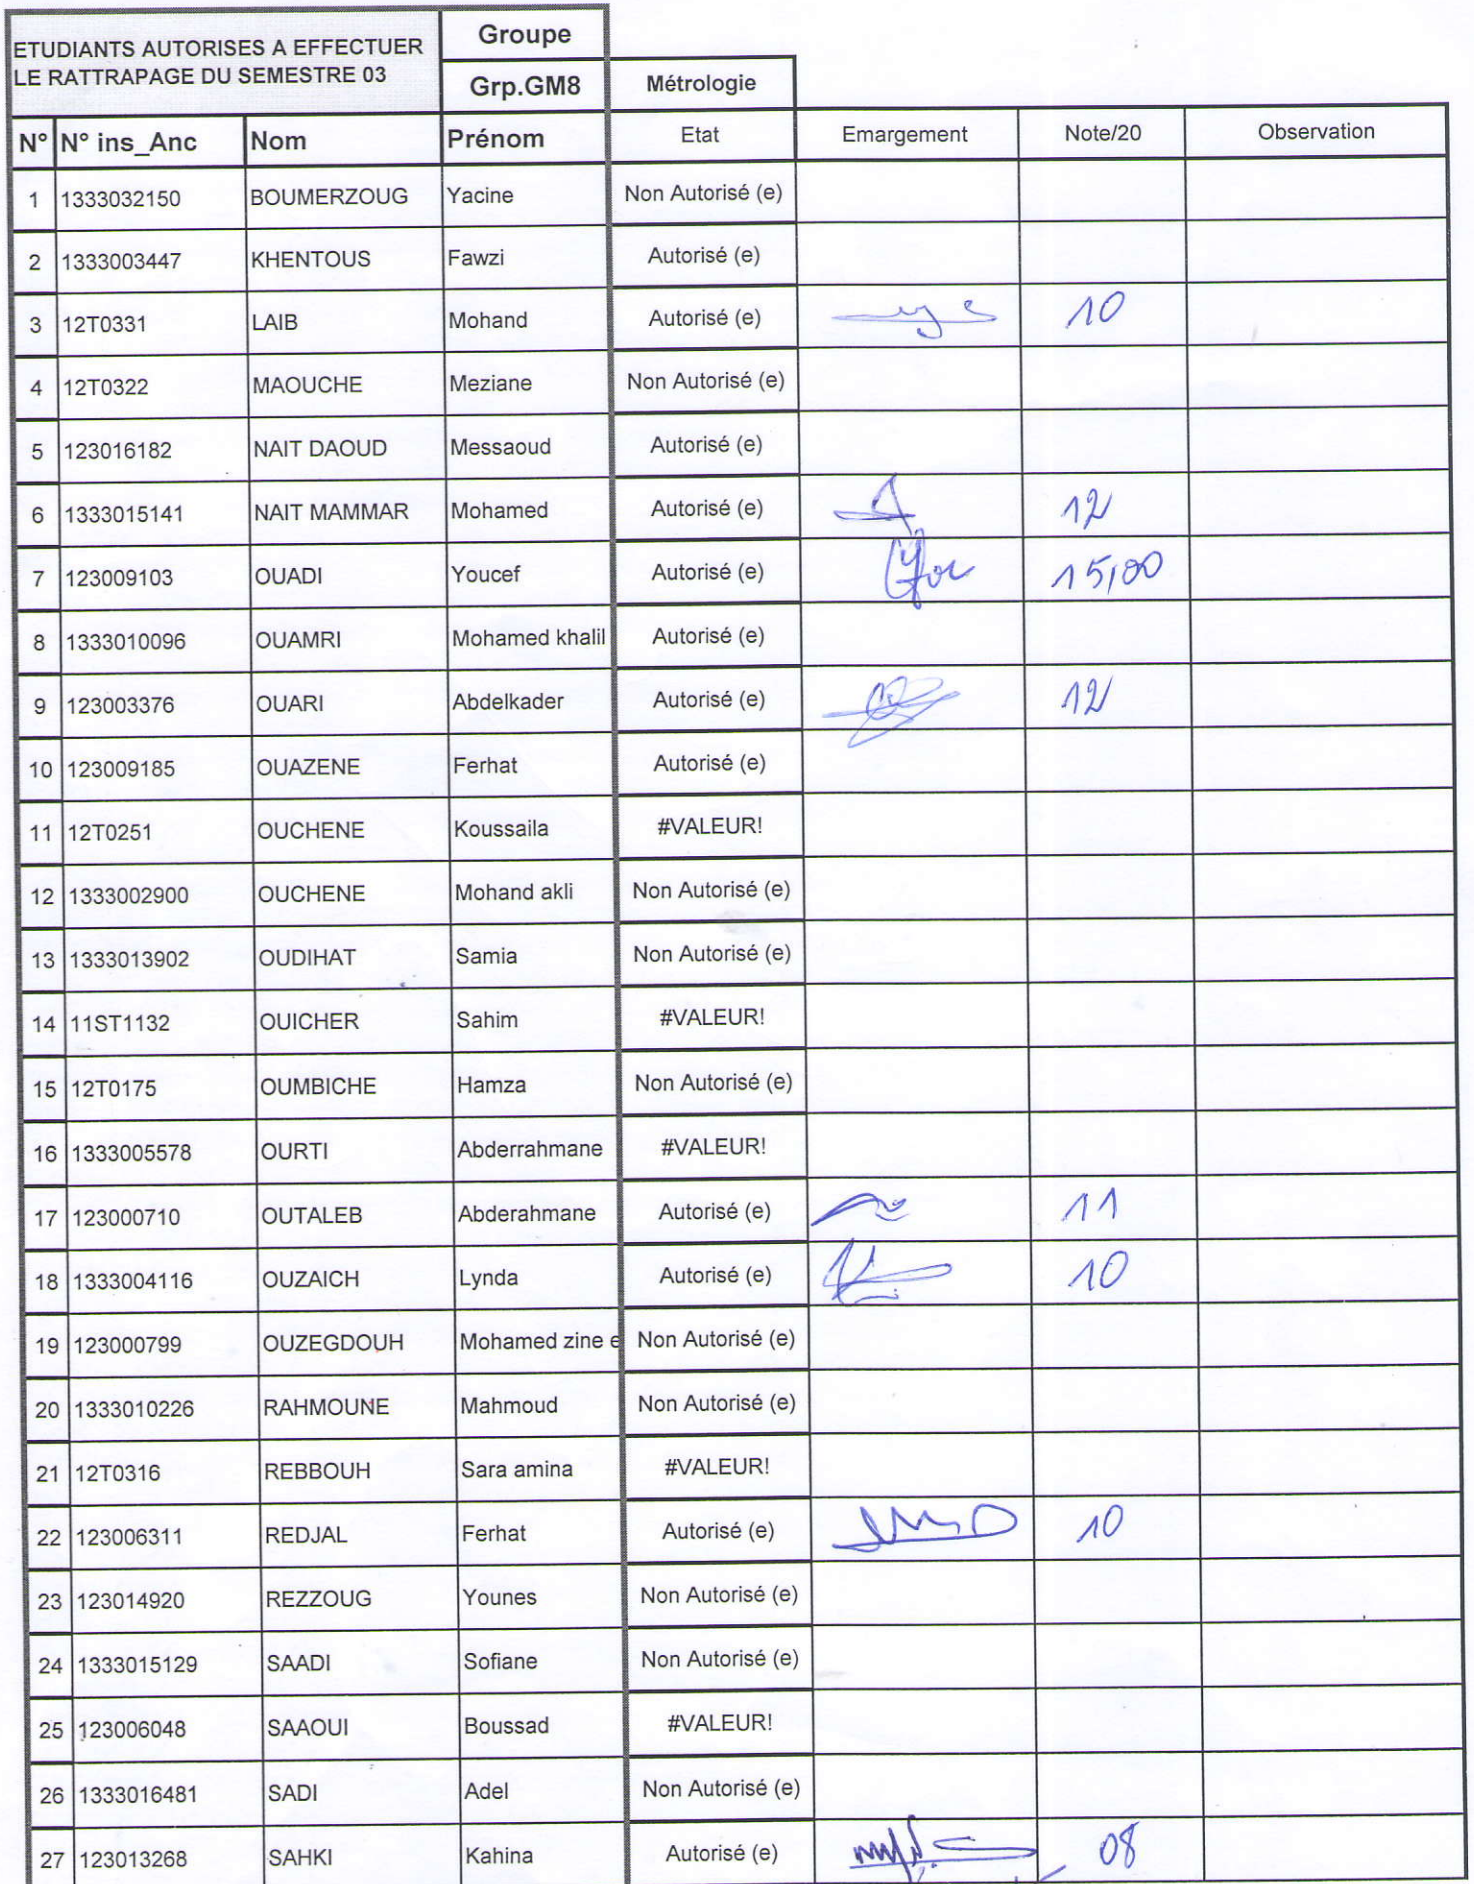 ETUDIANTS AUTORISES A EFFECTUER
LE RATTRAPAGE DU SEMESTRE 03
Groupe
Grp.GM8 Métrologie
N° N° ins_Anc Nom Prénom Etat Emargement Note/20 Observation
1 1333032150 BOUMERZOUG Yacine Non Autorisé (e)
2 1333003447 KHENTOUS Fawzi Autorisé (e)
3 12T0331 LAIB Mohand Autorisé (e) 10
4 12T0322 MAOUCHE Meziane Non Autorisé (e)
5 123016182 NAIT DAOUD Messaoud Autorisé (e)
6 1333015141 NAIT MAMMAR Mohamed Autorisé (e) 12
7 123009103 OUADI Youcef Autorisé (e) 15,00
8 1333010096 OUAMRI Mohamed khalil Autorisé (e)
9 123003376 OUARI Abdelkader Autorisé (e) 12
10 123009185 OUAZENE Ferhat Autorisé (e)
11 12T0251 OUCHENE Koussaila #VALEUR!
12 1333002900 OUCHENE Mohand akli Non Autorisé (e)
13 1333013902 OUDIHAT Samia Non Autorisé (e)
14 11ST1132 OUICHER Sahim #VALEUR!
15 12T0175 OUMBICHE Hamza Non Autorisé (e)
16 1333005578 OURTI Abderrahmane #VALEUR!
17 123000710 OUTALEB Abderahmane Autorisé (e) 11
18 1333004116 OUZAICH Lynda Autorisé (e) 10
19 123000799 OUZEGDOUH Mohamed zine e Non Autorisé (e)
20 1333010226 RAHMOUNE Mahmoud Non Autorisé (e)
21 12T0316 REBBOUH Sara amina #VALEUR!
22 123006311 REDJAL Ferhat Autorisé (e) 10
23 123014920 REZZOUG Younes Non Autorisé (e)
24 1333015129 SAADI Sofiane Non Autorisé (e)
25 123006048 SAAOUI Boussad #VALEUR!
26 1333016481 SADI Adel Non Autorisé (e)
27 123013268 SAHKI Kahina Autorisé (e) 08